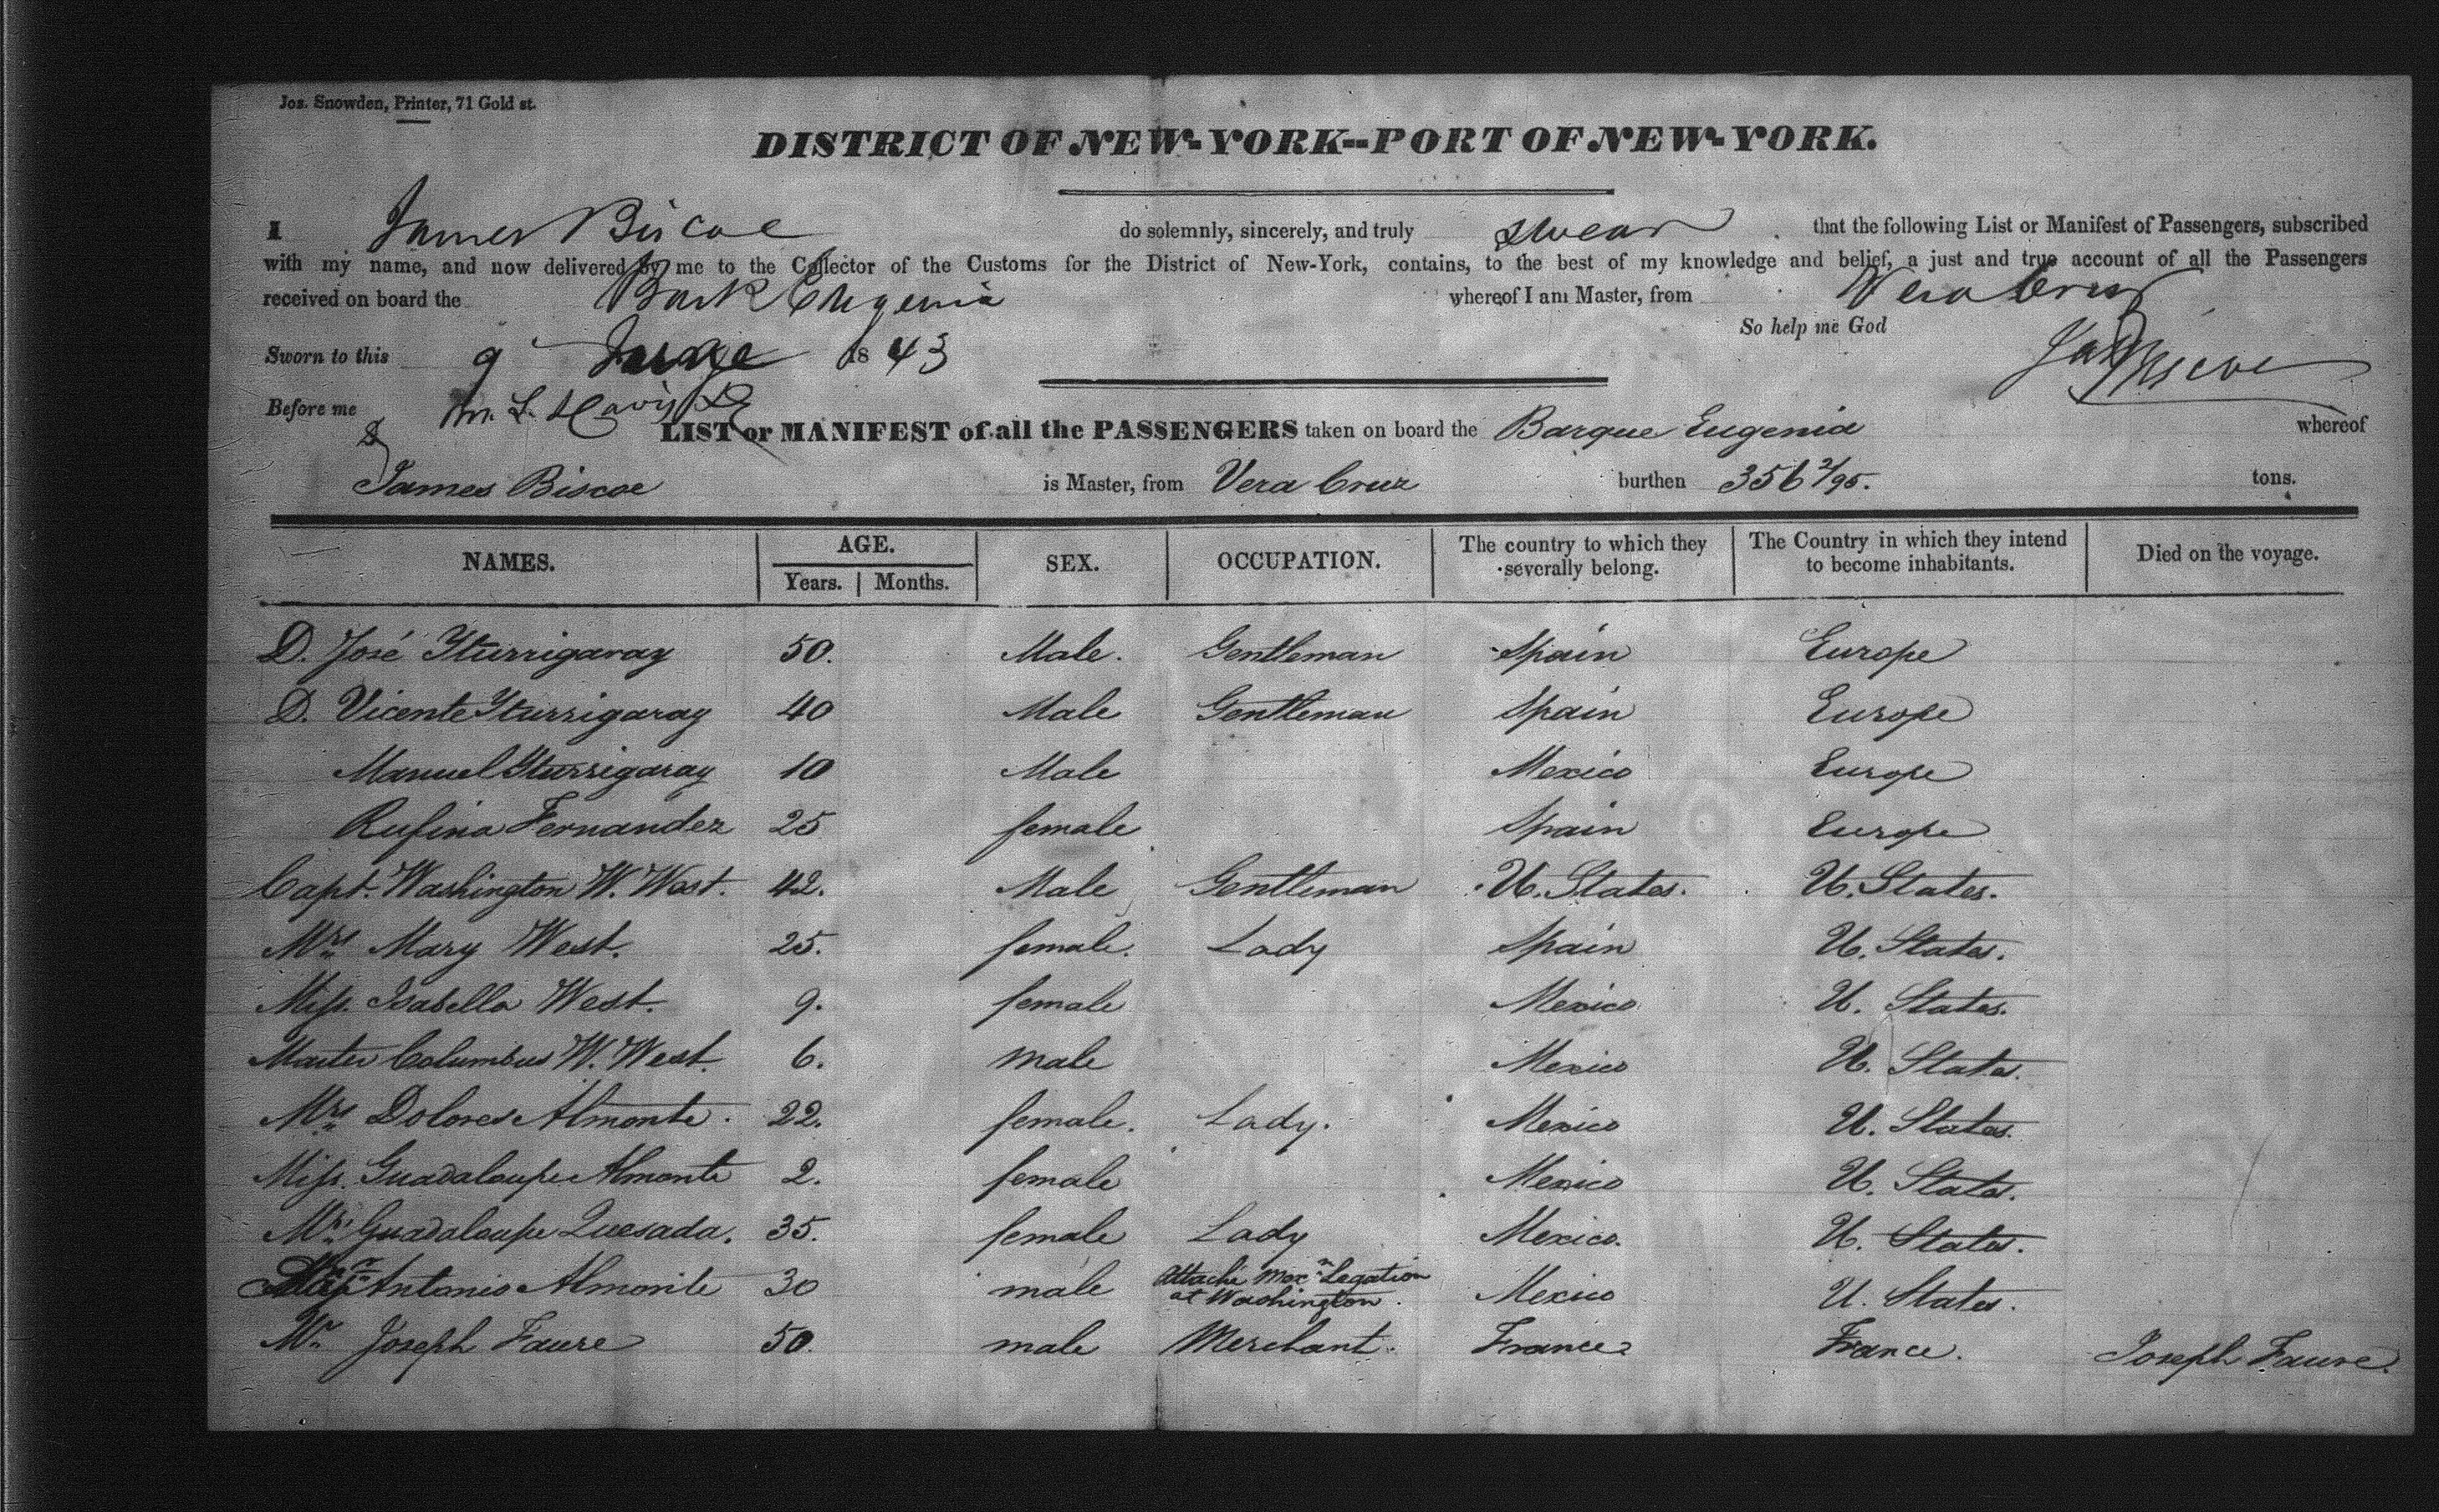 Jos. Snowden, Printer, 71 Gold st.
DISTRICT OF NEW-YORK--PORT OF NEW-YORK.
I James Biscoe do solemnly, sincerely, and truly swear that the following List or Manifest of Passengers, subscribed
with my name, and now delivered by me to the Collector of the Customs for the District of New-York, contains, to the best of my knowledge and belief, a just and true account of all the Passengers
received on board the Bark Eugenia whereof I am Master, from Vera Cruz
So help me God
Sworn to this 9 June 1843 Jas Biscoe
Before me M. L. Davis
LIST or MANIFEST of all the PASSENGERS taken on board the Barque Eugenia whereof
James Biscoe is Master, from Vera Cruz burthen 356 2/95. tons.
NAMES. AGE. Years. Months. SEX. OCCUPATION. The country to which they severally belong. The Country in which they intend to become inhabitants. Died on the voyage.
D. José Yturrigaray 50. Male. Gentleman Spain Europe
D. Vicente Yturrigaray 40 Male Gentleman Spain Europe
Manuel Yturrigaray 10 Male Mexico Europe
Rufina Fernandez 25 female Spain Europe
Capt. Washington W. West. 42. Male Gentleman U. States. U. States.
Mrs Mary West. 25. female. Lady Spain U. States.
Miss. Isabella West. 9. female Mexico U. States.
Master Columbus W. West. 6. male Mexico U. States.
Mrs Dolores Almonte. 22. female. Lady. Mexico U. States.
Miss. Guadaloupe Almonte 2. female Mexico U. States.
Mrs Guadaloupe Quesada. 35. female Lady Mexico. U. States.
Mr Antonio Almonte 30 male Attaché Mexn Legation at Washington. Mexico U. States.
Mr Joseph Faure 50. male Merchant. France France. Joseph Faure.